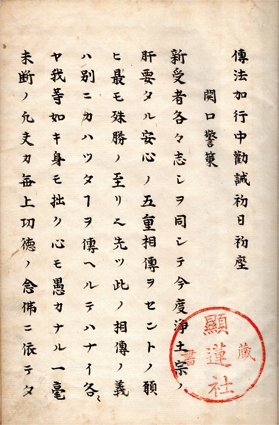 傳法加行中勸誡初日初座
開口警策
新受者各々志シヲ同シテ今度淨土宗ノ
肝要タル安心ノ五重相傳ヲセントノ願
ヒ最モ殊勝ノ至リ也先ツ此ノ相傳ノ義
ハ別ニカハツタヿヲ傳ヘルテハナイ各々
ヤ我等如キ身モ拙ク心モ愚カナル一毫
未断ノ凡夫カ無上功德ノ念佛ニ依テタ
顯蓮社
藏書